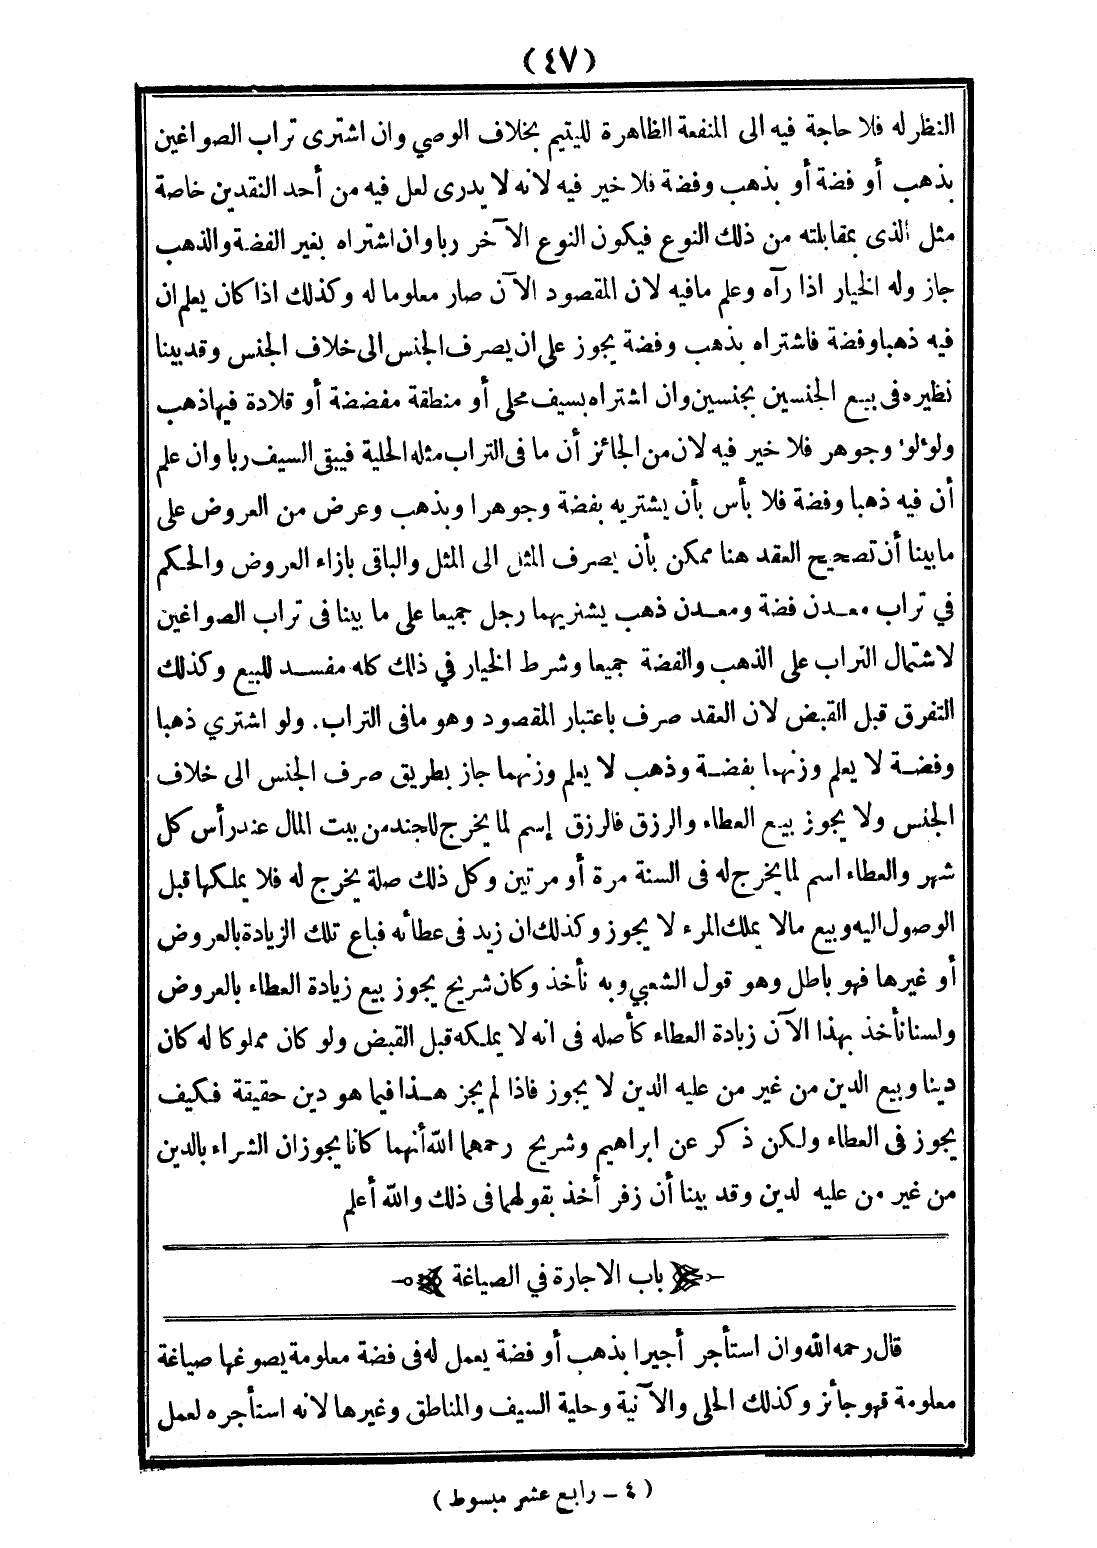 (٤٧)
النظر له فلا حاجة فيه الى المنفعة الظاهرة لليتيم بخلاف الوصي وان اشترى تراب الصواغين
بذهب أو فضة أو بذهب وفضة فلا خير فيه لانه لا يدرى لعل فيه من أحد النقدين خاصة
مثل الذى بمقابلته من ذلك النوع فيكون النوع الآخر ربا وان اشتراه بغير الفضة والذهب
جاز وله الخيار اذا رآه وعلم مافيه لان المقصود الآن صار معلوما له وكذلك اذا كان يعلم ان
فيه ذهبا وفضة فاشتراه بذهب وفضة يجوز على ان يصرف الجنس الى خلاف الجنس وقد بينا
نظيره فى بيع الجنسين بجنسين وان اشتراه بسيف محلى أو منطقة مفضضة أو قلادة فيها ذهب
ولؤلؤ وجوهر فلا خير فيه لان من الجائز أن ما فى التراب مثله الحلية فيبقى السيف ربا وان علم
أن فيه ذهبا وفضة فلا بأس بأن يشتريه بفضة وجوهر او بذهب وعرض من العروض على
ما بينا أن تصحيح العقد هنا ممكن بأن يصرف المثل الى المثل والباقى بازاء العروض والحكم
في تراب معدن فضة ومعدن ذهب يشتريهما رجل جميعا على ما بينا فى تراب الصواغين
لاشتمال التراب على الذهب والفضة جميعا وشرط الخيار في ذلك كله مفسد للبيع وكذلك
التفرق قبل القبض لان العقد صرف باعتبار المقصود وهو مافى التراب. ولو اشتري ذهبا
وفضة لا يعلم وزنهما بفضة وذهب لا يعلم وزنهما جاز بطريق صرف الجنس الى خلاف
الجنس ولا يجوز بيع العطاء والرزق فالرزق إسم لما يخرج للجند من بيت المال عند رأس كل
شهر والعطاء اسم لما يخرج له فى السنة مرة أو مرتين وكل ذلك صلة يخرج له فلا يملكها قبل
الوصول اليه وبيع مالا يملك المرء لا يجوز وكذلك ان زيد فى عطائه فباع تلك الزيادة بالعروض
أو غيرها فهو باطل وهو قول الشعبي وبه نأخذ وكان شريح يجوز بيع زيادة العطاء بالعروض
ولسنا نأخذ بهذا الآن زيادة العطاء كأصله فى انه لا يملكه قبل القبض ولو كان مملوكا له كان
دينا وبيع الدين من غير من عليه الدين لا يجوز فاذا لم يجز هذا فيما هو دين حقيقة فكيف
يجوز فى العطاء ولكن ذكر عن ابراهيم وشريح رحمهما الله أنهما كانا يجوزان الشراء بالدين
من غير من عليه لدين وقد بينا أن زفر أخذ بقولهما فى ذلك والله أعلم
باب الاجارة في الصياغة
قال رحمه الله وان استأجر أجيرا بذهب أو فضة يعمل له فى فضة معلومة يصوغها صياغة
معلومة قهو جائز وكذلك الحلى والآنية وحلية السيف والمناطق وغيرها لانه استأجره لعمل
(٤ – رابع عشر مبسوط)